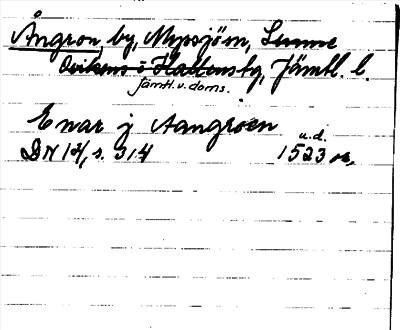 Ångron, by, Myssjöm, Sunne
Ovikens o Hallensbg, Jämtl. l.
Jämtl. v. doms.
Enar j Aangroen
u.d.
DN 14, s. 314 1523 or.